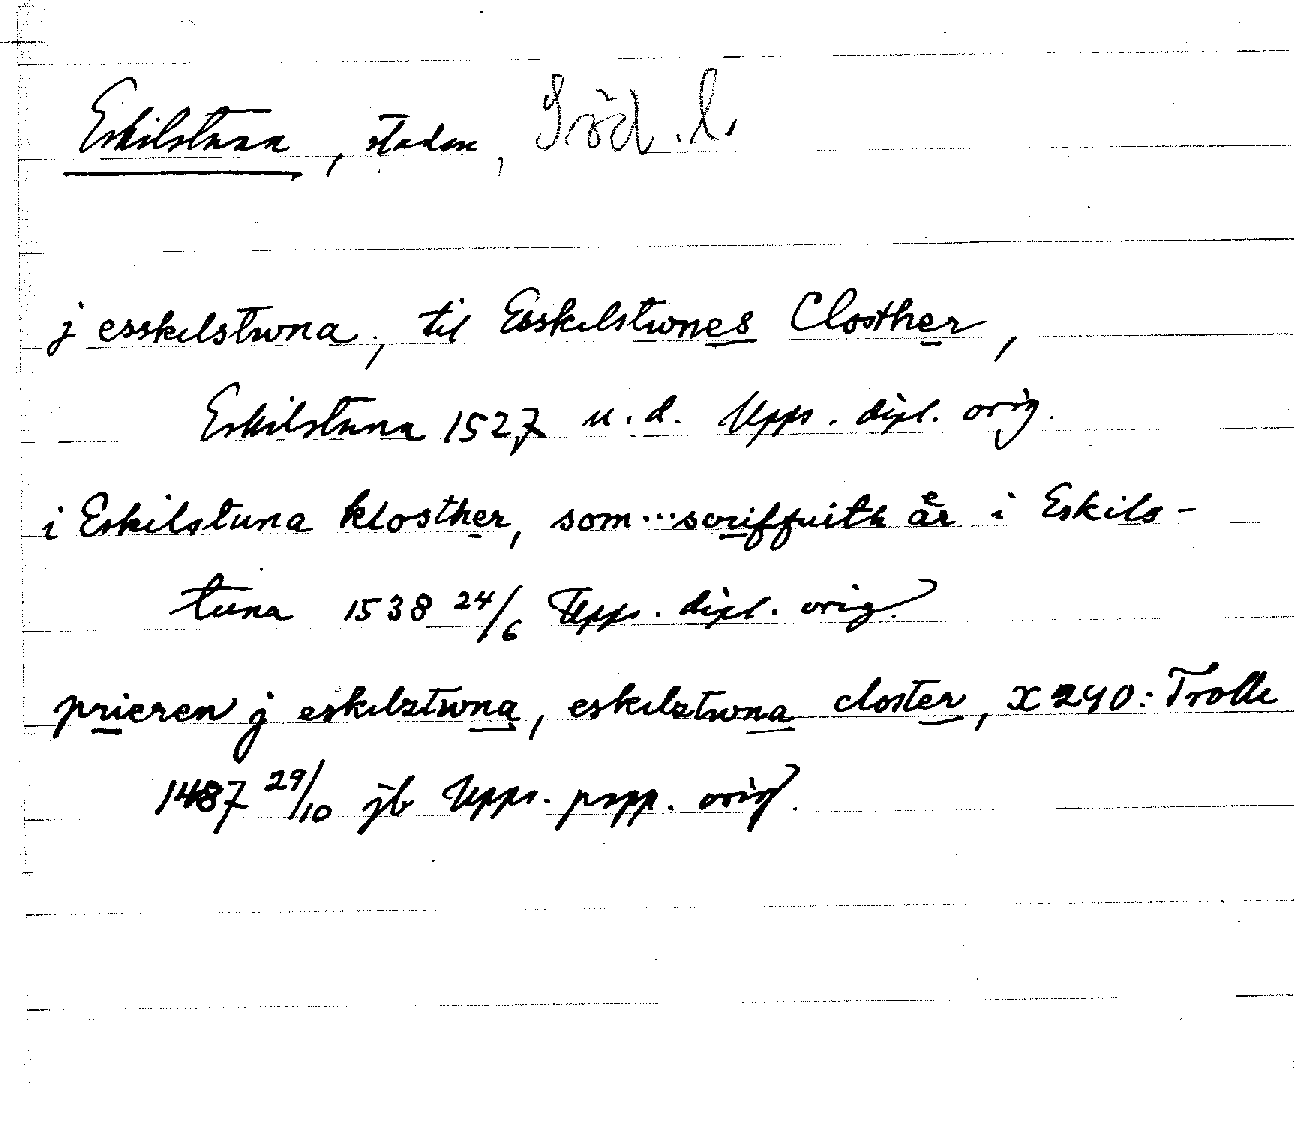 Eskilstuna, staden, Söd. l.
j esskilstwna, til Esskilstwnes Closther,
Eskilstuna 1527 u.d. Upps. dipl. orig.
i Eskilstuna klosther, som...scriffuith år i Eskils-
tuna 1538 24/6 Upps. dipl. orig.
prieren j eskilztwna, eskilztwna closter, X 240: Trolle
1487 29/10 jb Upps. papp. orig.